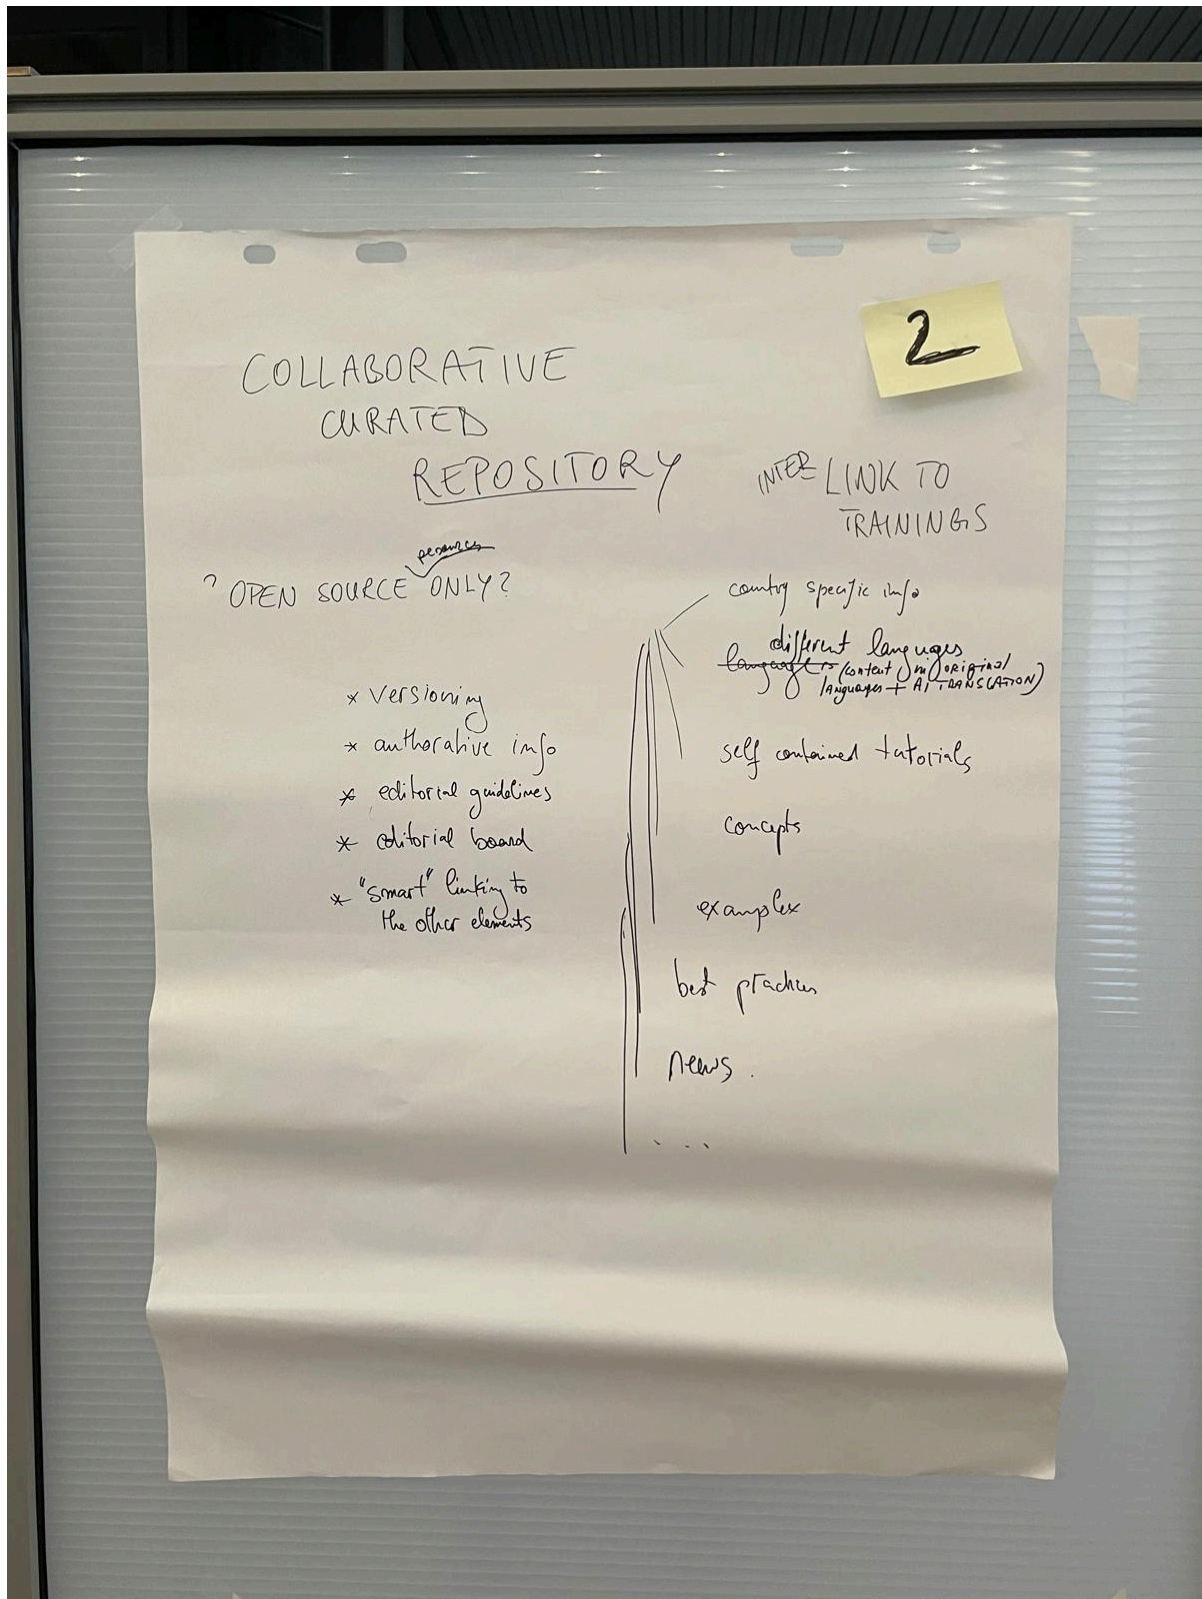 2
COLLABORATIVE
CURATED
REPOSITORY
INTER LINK TO
TRAININGS
? OPEN SOURCE ONLY?
* versioning
* authorative info
* editorial guidelines
* editorial board
* "smart" linking to
the other elements
country specific info
different languages
languages (content in original
languages + AI TRANSLATION)
self contained tutorials
concepts
examples
best practices
news.
....